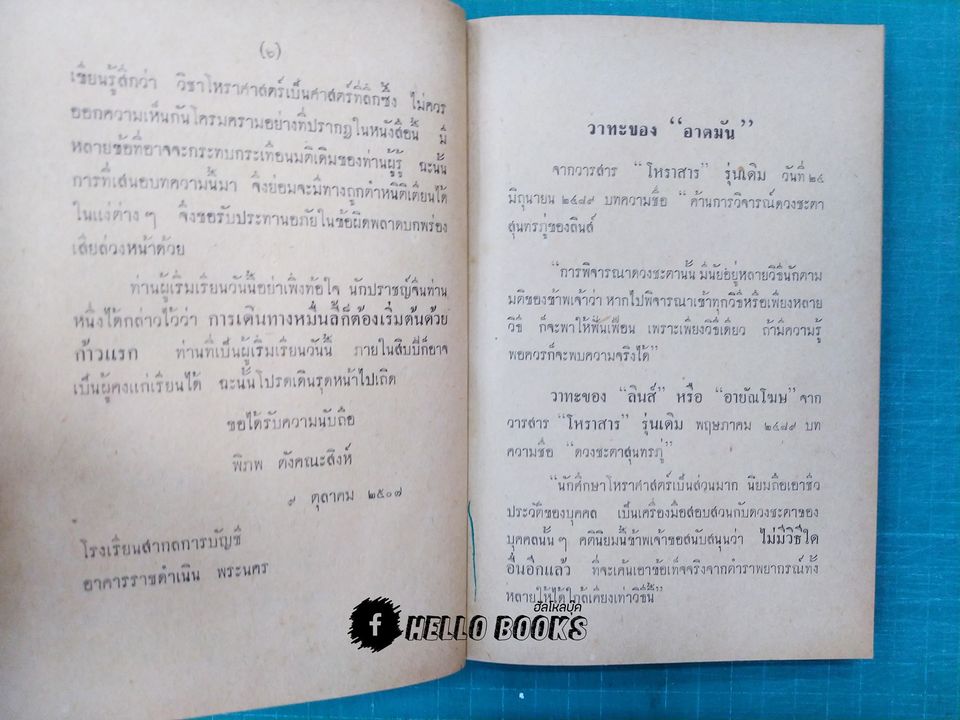 (๒)
เขียนรู้สึกว่า วิชาโหราศาสตร์เป็นศาสตร์ที่ลึกซึ้ง ไม่ควร
ออกความเห็นกันโครมครามอย่างที่ปรากฏในหนังสือนี้ มี
หลายข้อที่อาจจะกระทบกระเทือนมติเดิมของท่านผู้รู้ ฉะนั้น
การที่เสนอบทความนี้มา จึงย่อมจะมีทางถูกตำหนิติเตียนได้
ในแง่ต่าง ๆ จึงขอรับประทานอภัยในข้อผิดพลาดบกพร่อง
เสียล่วงหน้าด้วย
ท่านผู้เริ่มเรียนวันนี้อย่าเพิ่งท้อใจ นักปราชญ์จีนท่าน
หนึ่งได้กล่าวไว้ว่า การเดินทางหมื่นลี้ก็ต้องเริ่มต้นด้วย
ก้าวแรก ท่านที่เป็นผู้เริ่มเรียนวันนี้ ภายในสิบปีก็อาจ
เป็นผู้คงแก่เรียนได้ ฉะนั้นโปรดเดินรุดหน้าไปเถิด
ขอได้รับความนับถือ
พิภพ ตังคณะสิงห์
๙ ตุลาคม ๒๕๐๗
โรงเรียนสากลการบัญชี
อาคารราชดำเนิน พระนคร
วาทะของ “อาตมัน”
จากวารสาร “โหราสาร” รุ่นเดิม วันที่ ๒๔
มิถุนายน ๒๔๘๙ บทความชื่อ “ค้านการวิจารณ์ดวงชะตา
สุนทรภู่ของลินส์
“การพิจารณาดวงชะตานั้น มีนัยอยู่หลายวิธีนักตาม
มติของข้าพเจ้าว่า หากไปพิจารณาเข้าทุกวิธีหรือเพียงหลาย
วิธี ก็จะพาให้ฟั่นเฟือน เพราะเพียงวิธีเดียว ถ้ามีความรู้
พอควรก็จะพบความจริงได้”
วาทะของ “ลินส์” หรือ “อายัณโฆษ” จาก
วารสาร “โหราสาร” รุ่นเดิม พฤษภาคม ๒๔๘๙ บท
ความชื่อ “ดวงชะตาสุนทรภู่”
“นักศึกษาโหราศาสตร์เป็นส่วนมาก นิยมถือเอาชีว
ประวัติของบุคคล เป็นเครื่องมือสอบสวนกับดวงชะตาของ
บุคคลนั้น ๆ คตินิยมนี้ข้าพเจ้าขอสนับสนุนว่า ไม่มีวิธีใด
อื่นอีกแล้ว ที่จะค้นเอาข้อเท็จจริงจากตำราพยากรณ์ทั้ง
หลายให้ได้ใกล้เคียงเท่าวิธีนี้”
ฮัลโหลบุ๊ค
HELLO BOOKS